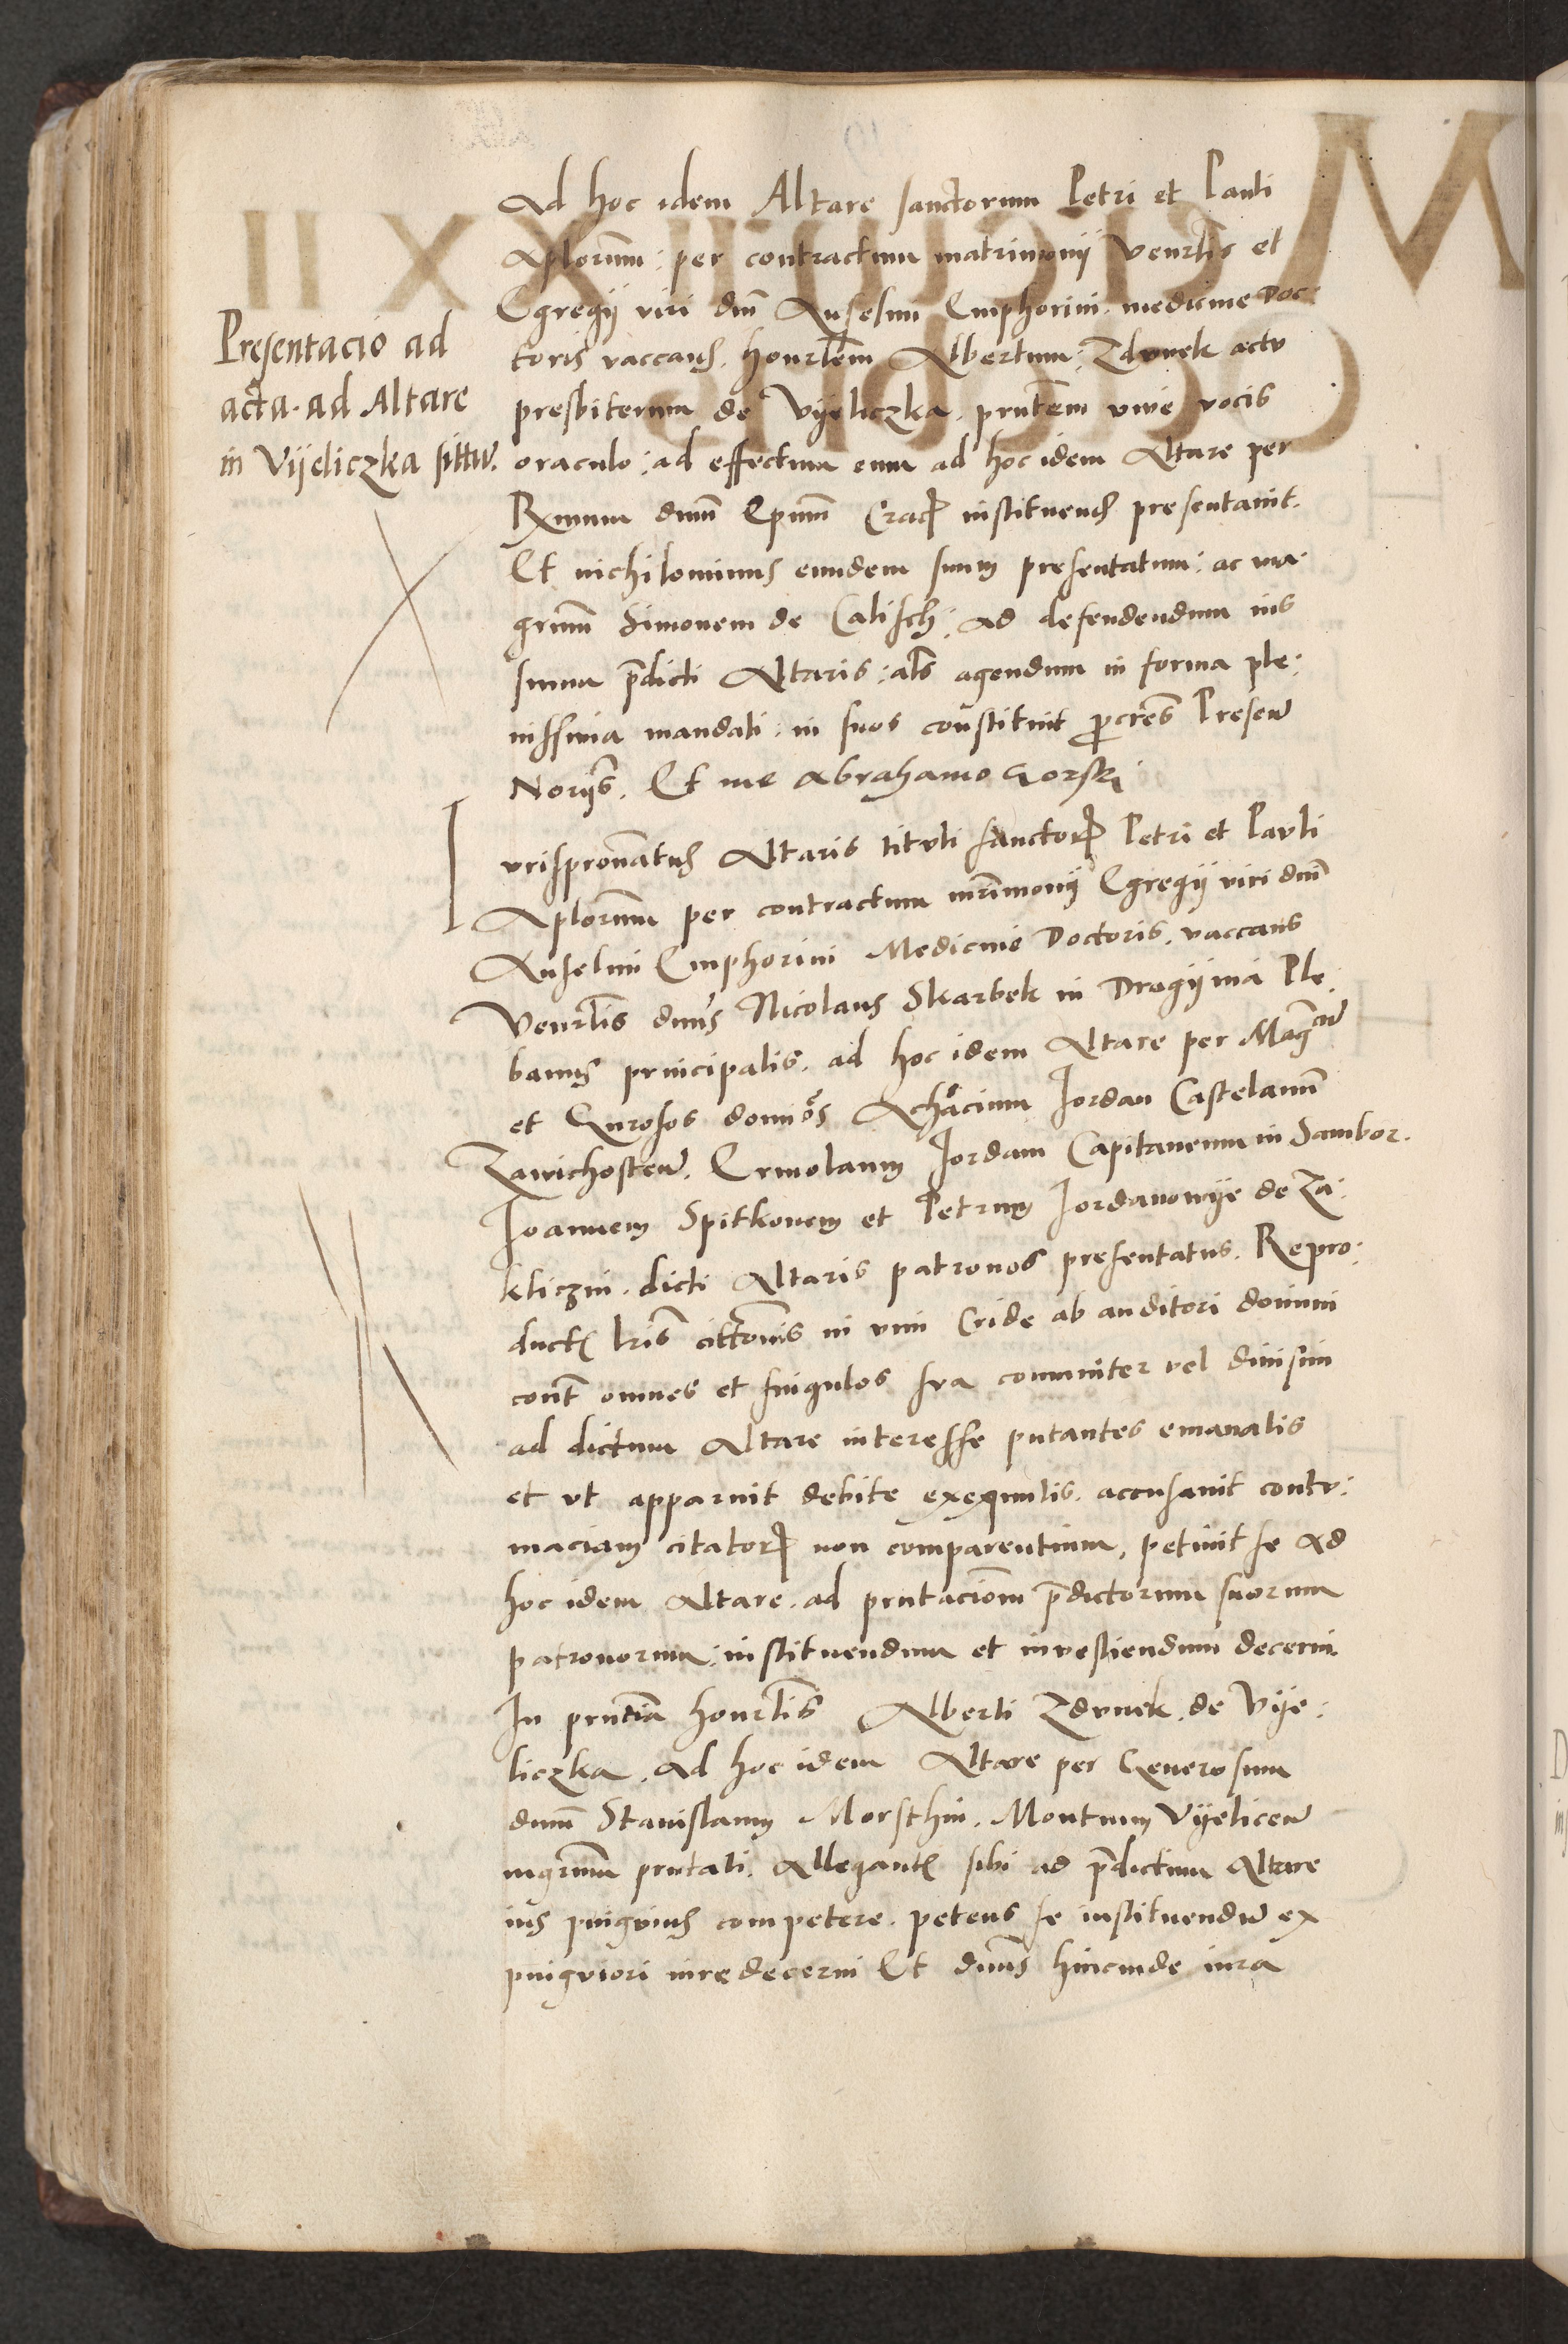 Presentacio ad
acta. ad Altare
in Vijeliczka situ.
Ad hoc idem Altare sanctorum Petri et Pauli
Aplorum: per contractum matrimonij Venrlis et
Egregij viri dni Anselmi Emphorini. medicine Doc:
toris vaccans. honrlem Albertum: Zdunek actu
presbiterum de Vyeliczka. prntem vive vocis
oraculo: ad effectum eum ad hoc idem Altare per
Rximum dnum Epum Crac instituend presentavit.
Et nichilominus eundem suum presentatum: ac ma:
grum Simonem de Calisch: ad defendendum ius
suum pdicti Altaris: als agendum in forma ple:
nissima mandati: in suos constituit procres Presen
Norijs. Et me Abrahamo Gorski
Iurispronatus Altaris tituli sanctor Petri et Pauli
Aplorum per contractum mrimonij Egregij viri dni
Anselmi Emphorini Medicine Doctoris. vaccans
Venrlis dnus Nicolaus Skarbek in Drogijnia Ple:
banus principalis. ad hoc idem Altare per Magcu
et Gnrosos dominos Achacium Jordan Castelanum
Zawichosten. Ermolaum Jordam Capitaneum in Sambor.
Joannem Spitkonem et Petrum Jordanowije de Za:
kliczin. dicti Altaris patronos presentatus. Repro:
duct lris cittonis in vim Cride ab auditori domini
cont omnes et singulos sua comuniter vel divisim
ad dictum Altare interesse putantes emanatis
et vt apparuit debite exequutis. accusavit contu:
maciam citator non comparentium, petiuit se ad
hoc idem Altare. ad prntaciom pdictorum suorum
patronorum: instituendum et investiendum decerni
In prntia honrlis Alberti Zdunek. de Vije:
liczka. ad hoc idem Altare per Generosum
dnum Stanislaum Morsthin. Montium Vijelicen
mgrum prntati. Allegant sibi ad pdictum Altare
ius pinguius competere. petens se instituendu ex
pinguiori iure decerni Et dnus hincinde iura